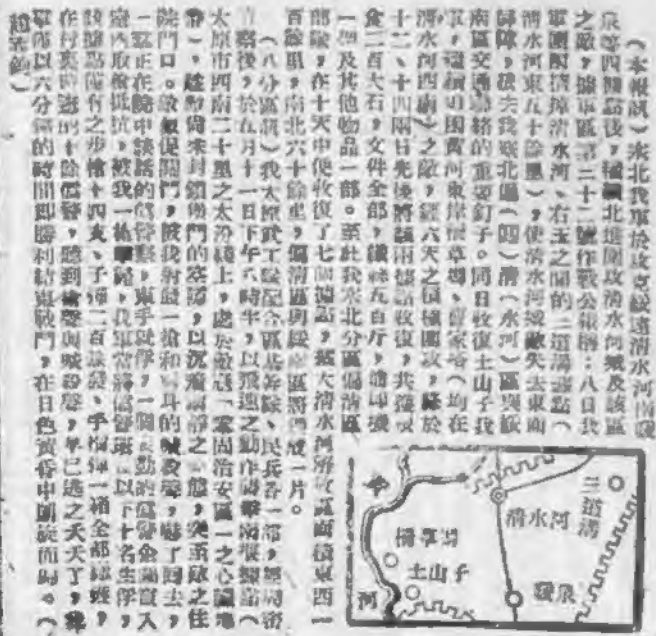 （本報訊）米北我軍於攻克綏遠清水河南暖
泉等四據點後，積極北進圍攻清水河城及該區
之敵，據軍區第二十二號作戰公報稱：八日我
軍團殲清掃清水河、右玉之間的三道溝據點（
清水河東五十餘里），使清水河城敵失去東面
屏障，拔去我塞北偏（四）清（水河）區與綏
南區交通聯絡的重要釘子。同日收復土山子我
軍，繼續山圍黃河東岸柵草墕、曹家塔（均在
清水河西南）之敵，經六天之積極圍攻，終於
十二、十四兩日先後將該兩據點收復，共獲糧
食二百大石，文件全部，鐵絲五百斤，
一架及其他物品一部。至此我米北分區偏清區
部隊，在十天中便收復了七個據點，擴大清水河解放區面積東西一
百餘里，南北六十餘里，偏清區與綏南區將打成一片。
（八分區訊）我太原武工隊配合區基幹隊、民兵各一部，經周密
偵察後，於五月十一日下午六時半，以飛速之動作襲擊南堰據點（
太原市西南二十里之太汾綫上，處於敵寇「鞏固治安區」之心臟地
帶），趁敵尚未封鎖堡門的空隙，以沉着肅靜之姿態，突至敵之住
院門口。敵擬促關門，被我射擊一槍和
一夥正在院中談話的僞警察，束手就俘，一個
窰內取槍抵抗，被我一槍擊斃，我軍當將僞警
該據點備有之步槍十四支、子彈二百餘發、手榴彈一箱全部繳獲，
在村莫時巡的十餘僞警，聽到槍聲與喊殺聲，早已逃之夭夭了，我
軍僅以六分鐘的時間即勝利結束戰鬥，在日色黃昏中凱旋而歸。（
三道溝
清水河
柵草墕
土山子
暖泉
河